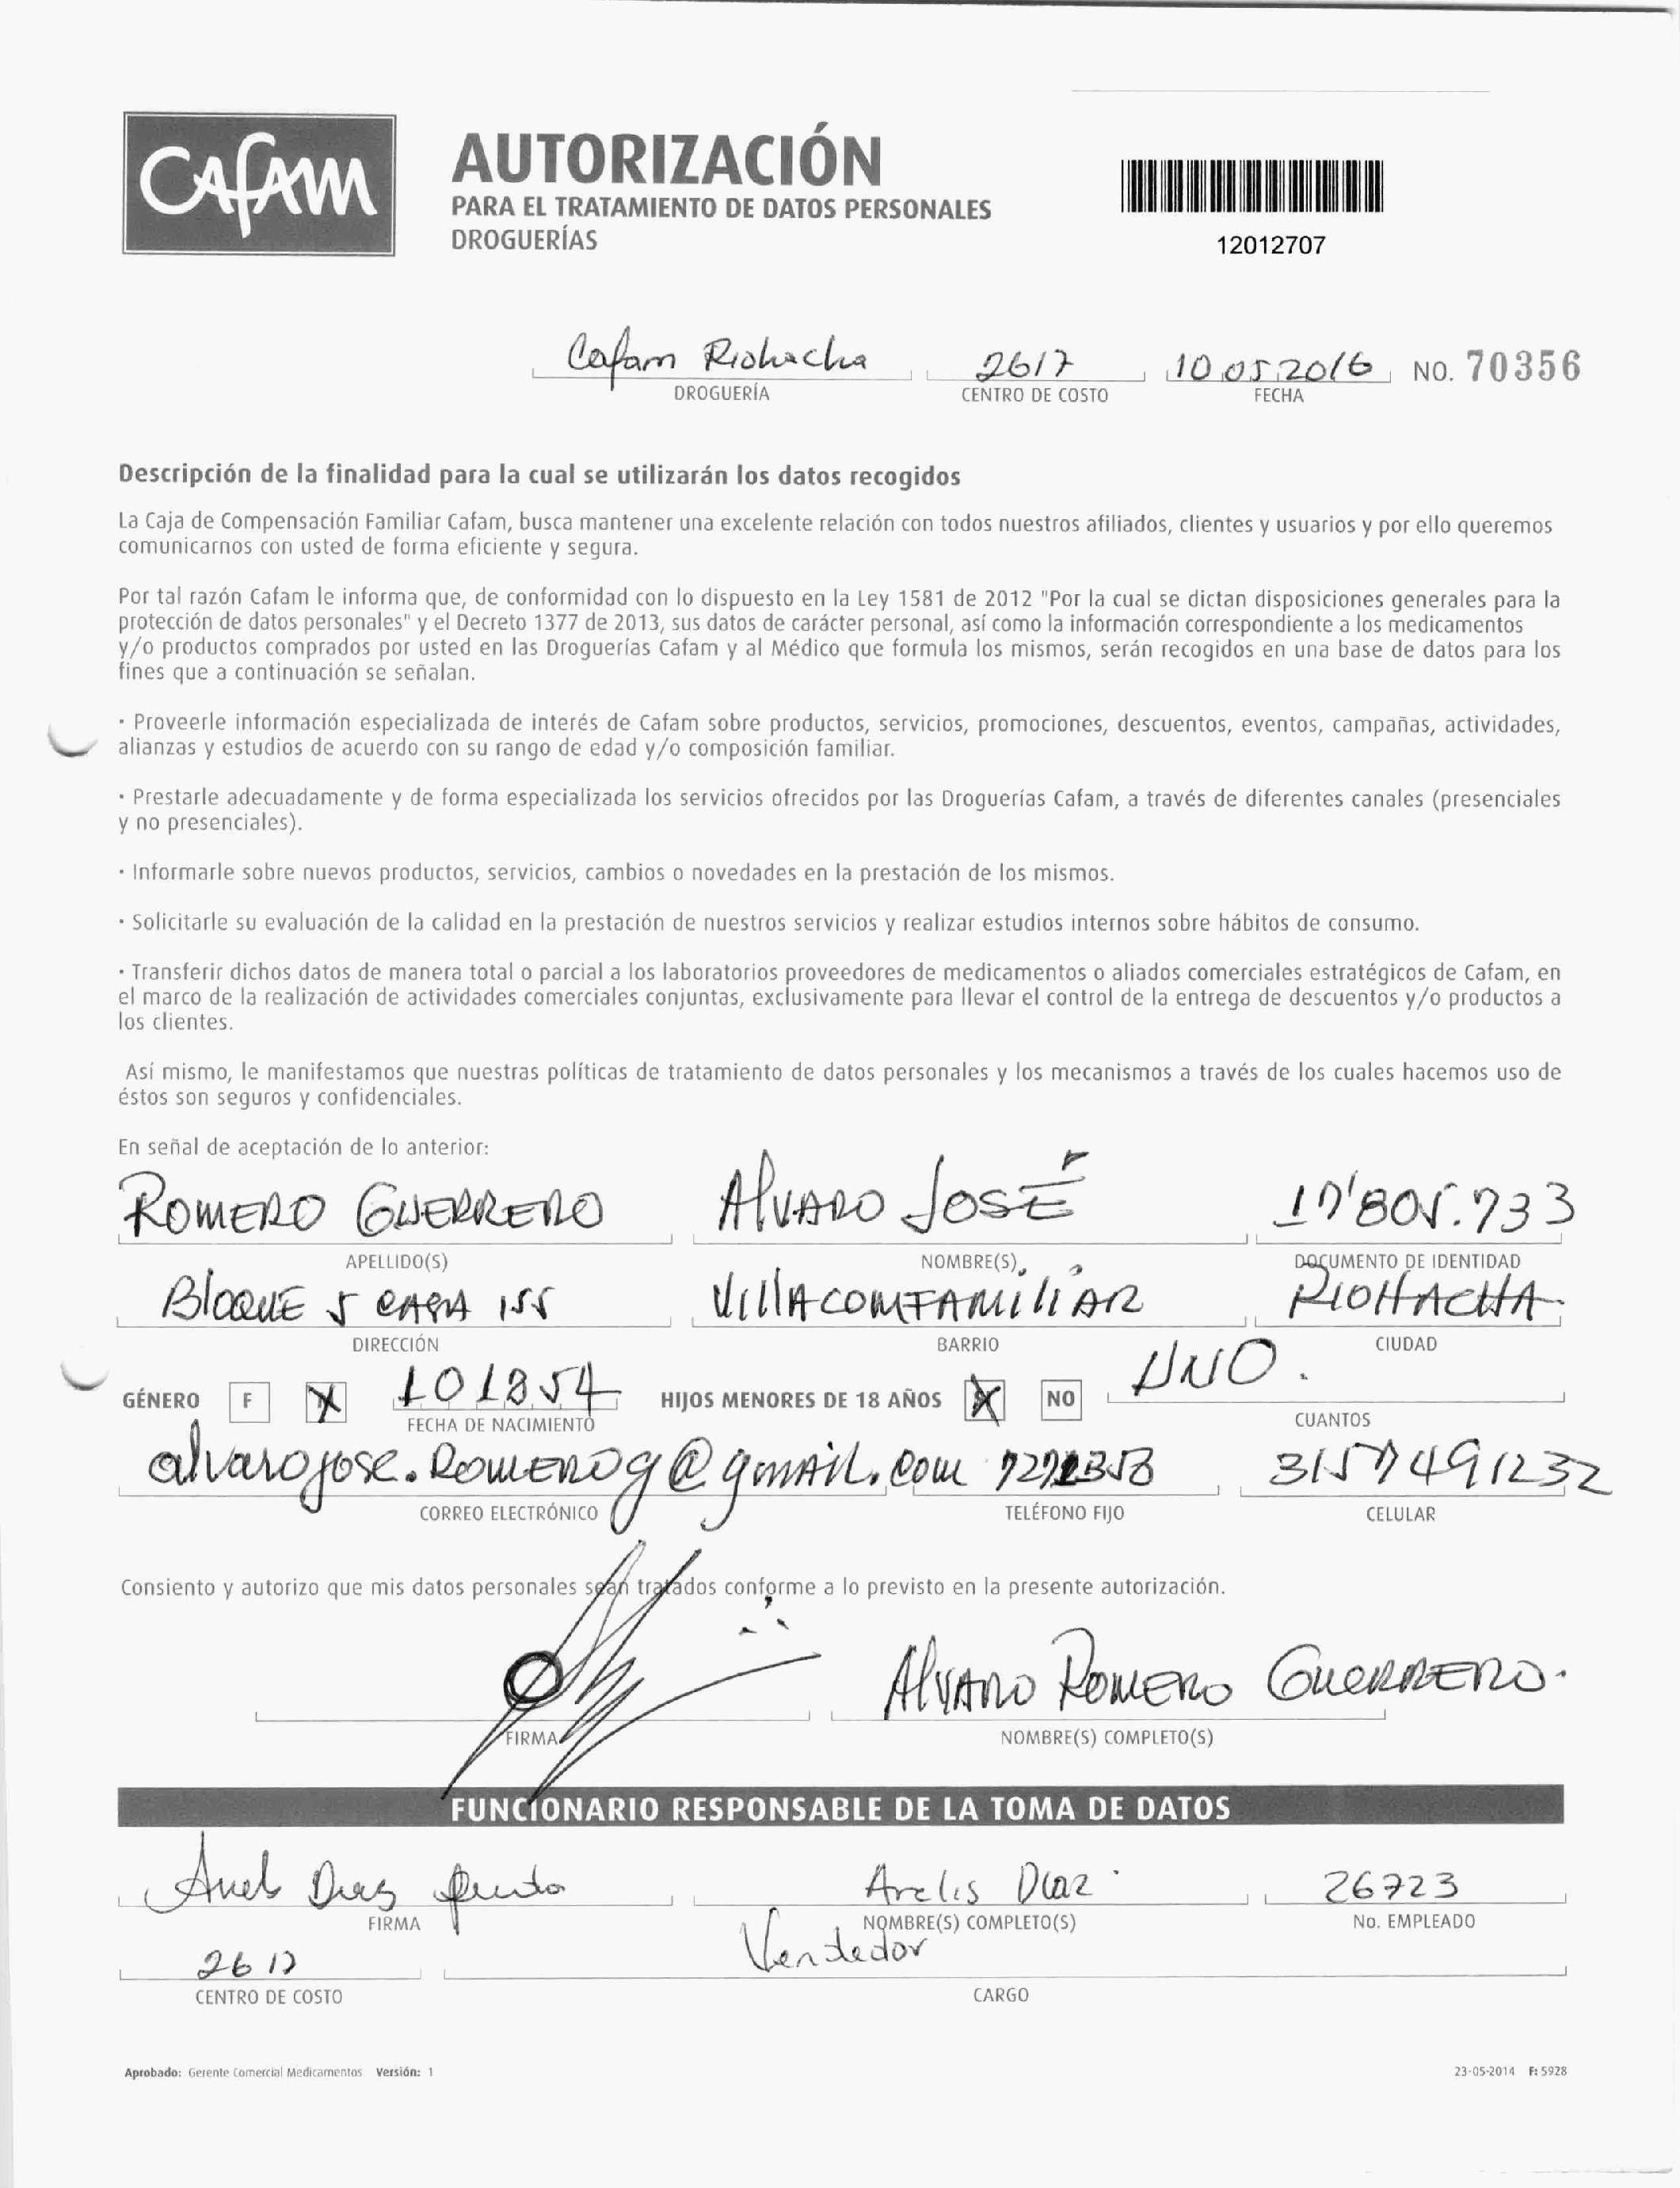 CAFAM
AUTORIZACIÓN
PARA EL TRATAMIENTO DE DATOS PERSONALES
DROGUERÍAS
12012707
Cafam Riohacha 2617 10 05 2016 NO. 70356
DROGUERÍA CENTRO DE COSTO FECHA
Descripción de la finalidad para la cual se utilizarán los datos recogidos
La Caja de Compensación Familiar Cafam, busca mantener una excelente relación con todos nuestros afiliados, clientes y usuarios y por ello queremos
comunicarnos con usted de forma eficiente y segura.
Por tal razón Cafam le informa que, de conformidad con lo dispuesto en la Ley 1581 de 2012 "Por la cual se dictan disposiciones generales para la
protección de datos personales" y el Decreto 1377 de 2013, sus datos de carácter personal, así como la información correspondiente a los medicamentos
y/o productos comprados por usted en las Droguerías Cafam y al Médico que formula los mismos, serán recogidos en una base de datos para los
fines que a continuación se señalan.
· Proveerle información especializada de interés de Cafam sobre productos, servicios, promociones, descuentos, eventos, campañas, actividades,
alianzas y estudios de acuerdo con su rango de edad y/o composición familiar.
· Prestarle adecuadamente y de forma especializada los servicios ofrecidos por las Droguerías Cafam, a través de diferentes canales (presenciales
y no presenciales).
· Informarle sobre nuevos productos, servicios, cambios o novedades en la prestación de los mismos.
· Solicitarle su evaluación de la calidad en la prestación de nuestros servicios y realizar estudios internos sobre hábitos de consumo.
· Transferir dichos datos de manera total o parcial a los laboratorios proveedores de medicamentos o aliados comerciales estratégicos de Cafam, en
el marco de la realización de actividades comerciales conjuntas, exclusivamente para llevar el control de la entrega de descuentos y/o productos a
los clientes.
Así mismo, le manifestamos que nuestras políticas de tratamiento de datos personales y los mecanismos a través de los cuales hacemos uso de
éstos son seguros y confidenciales.
En señal de aceptación de lo anterior:
ROMERO GUERRERO ALVARO JOSÉ 17'805.733
APELLIDO(S) NOMBRE(S) DOCUMENTO DE IDENTIDAD
BLOQUE 5 CASA 155 VILLACOMFAMILIAR RIOHACHA
DIRECCIÓN BARRIO CIUDAD
GÉNERO F 101854 HIJOS MENORES DE 18 AÑOS NO UNO.
FECHA DE NACIMIENTO CUANTOS
alvarojose.ROMEROg@gmail.com 3157491232
CORREO ELECTRÓNICO TELÉFONO FIJO CELULAR
Consiento y autorizo que mis datos personales sean tratados conforme a lo previsto en la presente autorización.
ALVARO ROMERO GUERRERO.
FIRMA NOMBRE(S) COMPLETO(S)
FUNCIONARIO RESPONSABLE DE LA TOMA DE DATOS
Arelis Diaz 26723
FIRMA NOMBRE(S) COMPLETO(S) No. EMPLEADO
2617 Vendedor
CENTRO DE COSTO CARGO
Aprobado: Gerente Comercial Medicamentos Versión: 1 23-05-2014 F: 5928